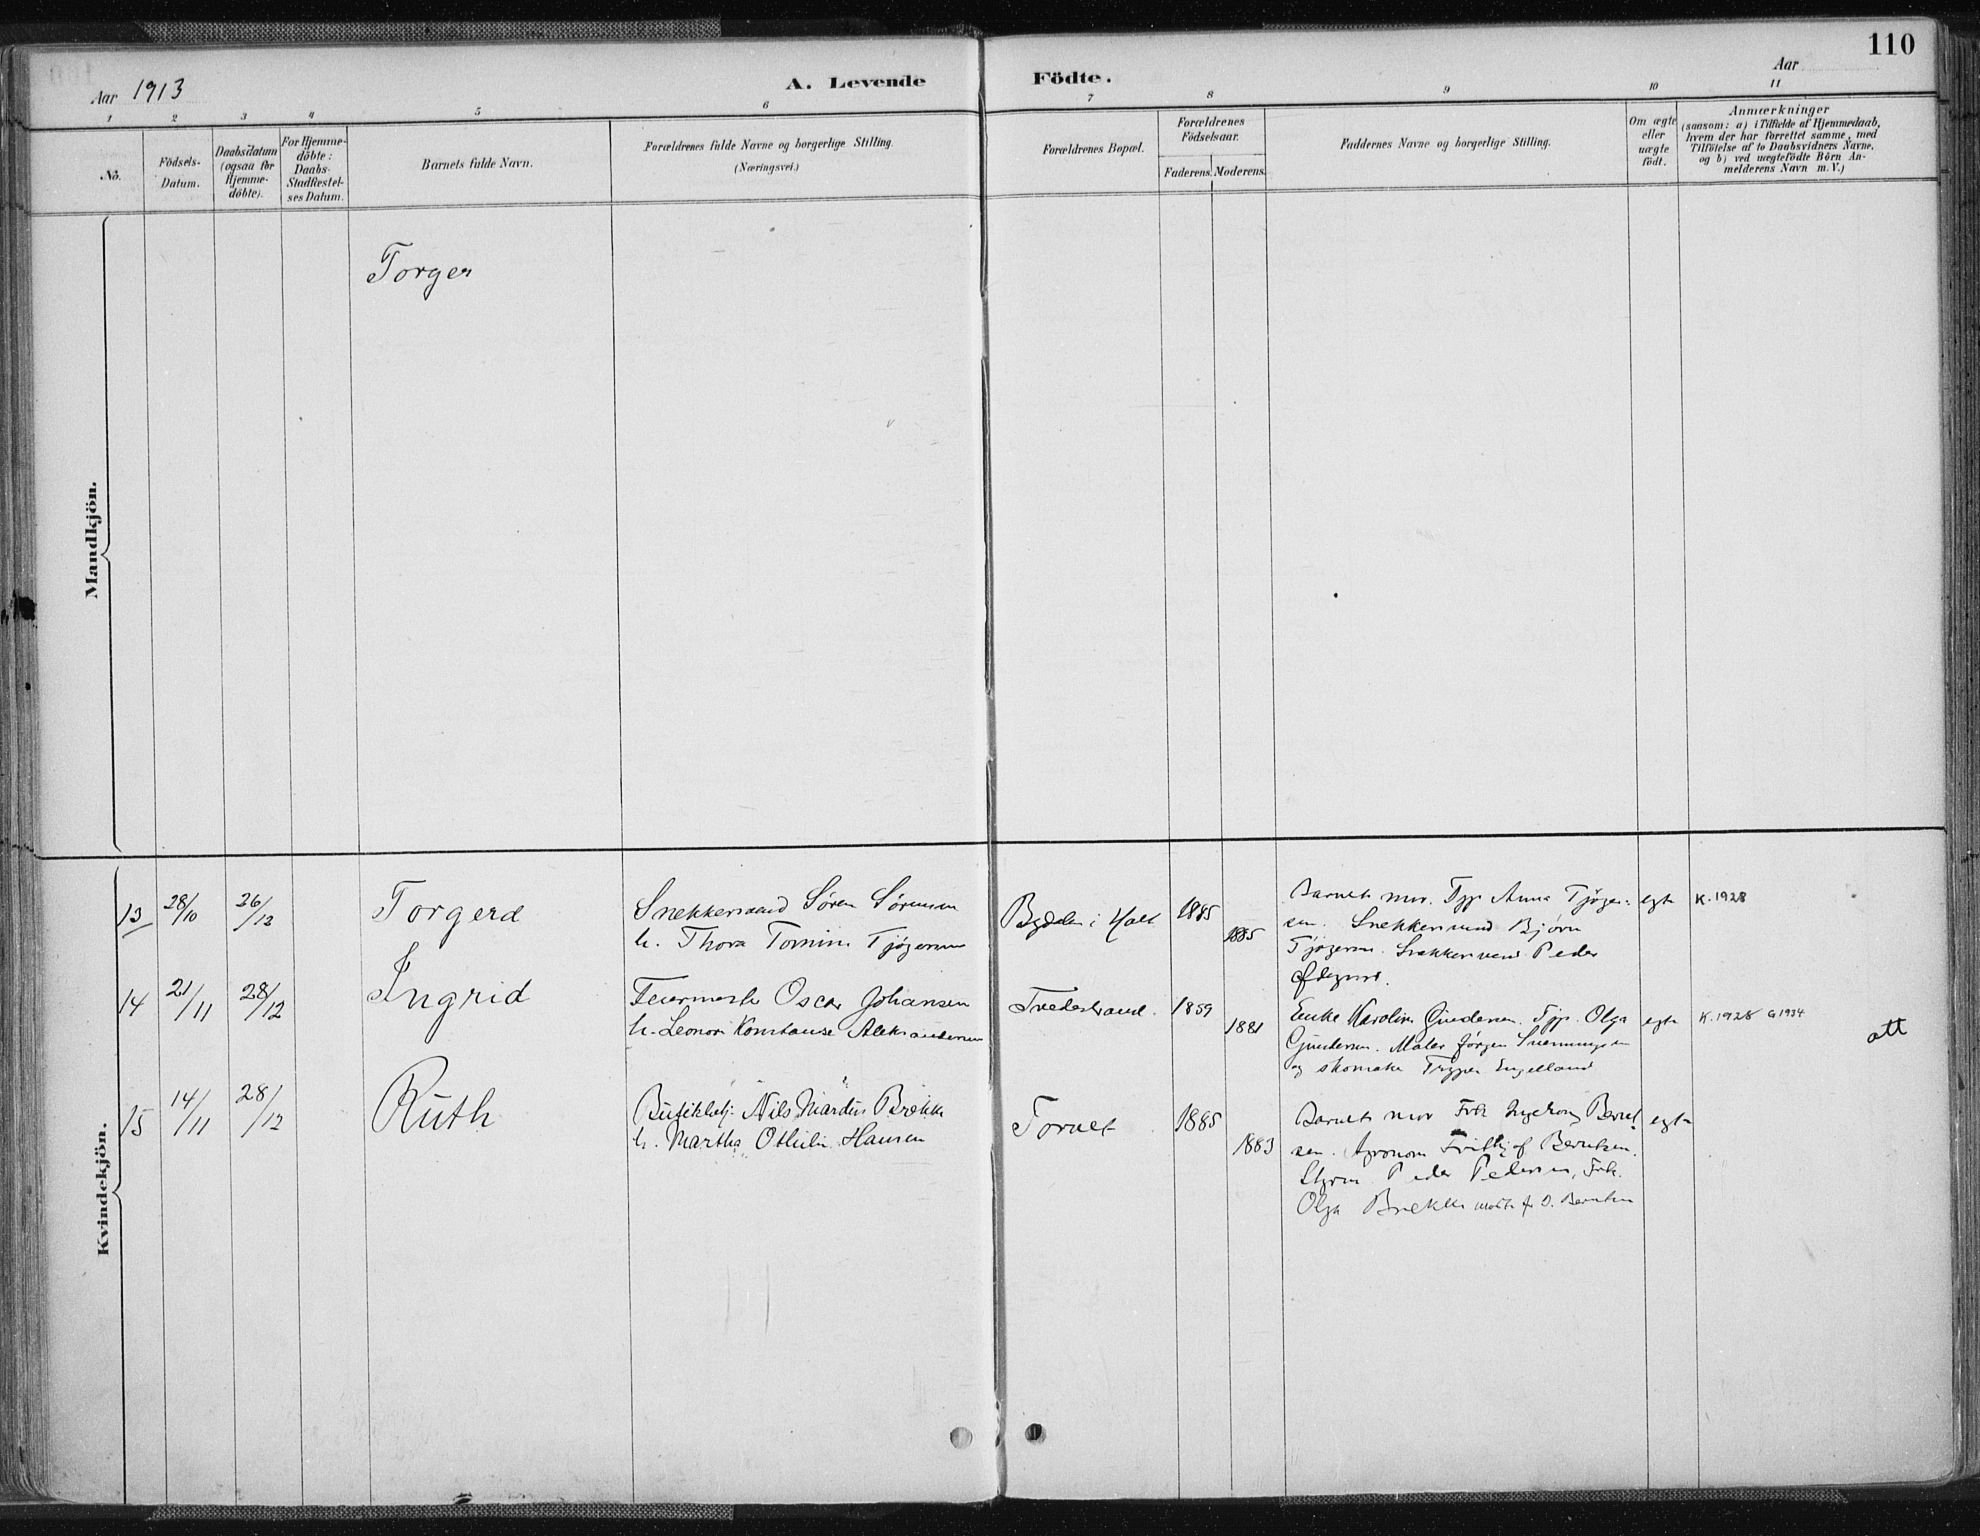 110
Aar 1913
A. Levende Födte.
Aar
1 2 3 4 5 6 7 8 9 10 11
No.
Födsels-
Datum.
Daabsdatum
(ogsaa for
Hjemme-
döbte).
For Hjemme-
döbte:
Daabs-
Stadfæstel-
ses Datum.
Barnets fulde Navn.
Forældrenes fulde Navne og borgerlige Stilling.
(Næringsvei.)
Forældrenes Bopæl.
Forældrenes
Födselsaar.
Faderens. Moderens.
Faddernes Navne og borgerlige Stilling.
Om ægte
eller
uægte
födt.
Anmærkninger
(saasom: a) i Tilfælde af Hjemmedaab,
hvem der har forrettet samme, med
Tilföielse af to Daabsvidners Navne,
og b) ved uægtefödte Börn An-
melderens Navn m. V.)
Mandkjön.
Torger
Kvindekjön.
13
28/10
26/12
Torgerd
Snekkersvend Sören Sörensen
h. Thora Tomine Tjögersen
Bygden i Holt
1885
1885
Barnets mor. Tjp. Anna Tjöger-
sen. Snekkersvend Björn
Tjögersen. Snekkersvend Peder
Ødegaard.
egte
K. 1928
14
21/11
28/12
Ingrid
Feiermester Oscar Johansen
h. Leonore Konstanse Aleksandersen
Tvedestrand.
1859
1881
Enke Karoline Gundersen. Tjp. Olga
Gundersen. Maler Jörgen
og skomaker Engelland
egte
K. 1928 G 1934
att
15
14/11
28/12
Ruth
Butikbetj. Nils Mardus Brekke
h. Martha Othilie Hansen
Torvet
1885
1883
Barnets mor Frk Ingeborg Bernt-
sen. Agronom Frithjof Berntsen.
Styrm. Peder Pedersen, Frk.
Olga Brekke D. Berntsen
egte